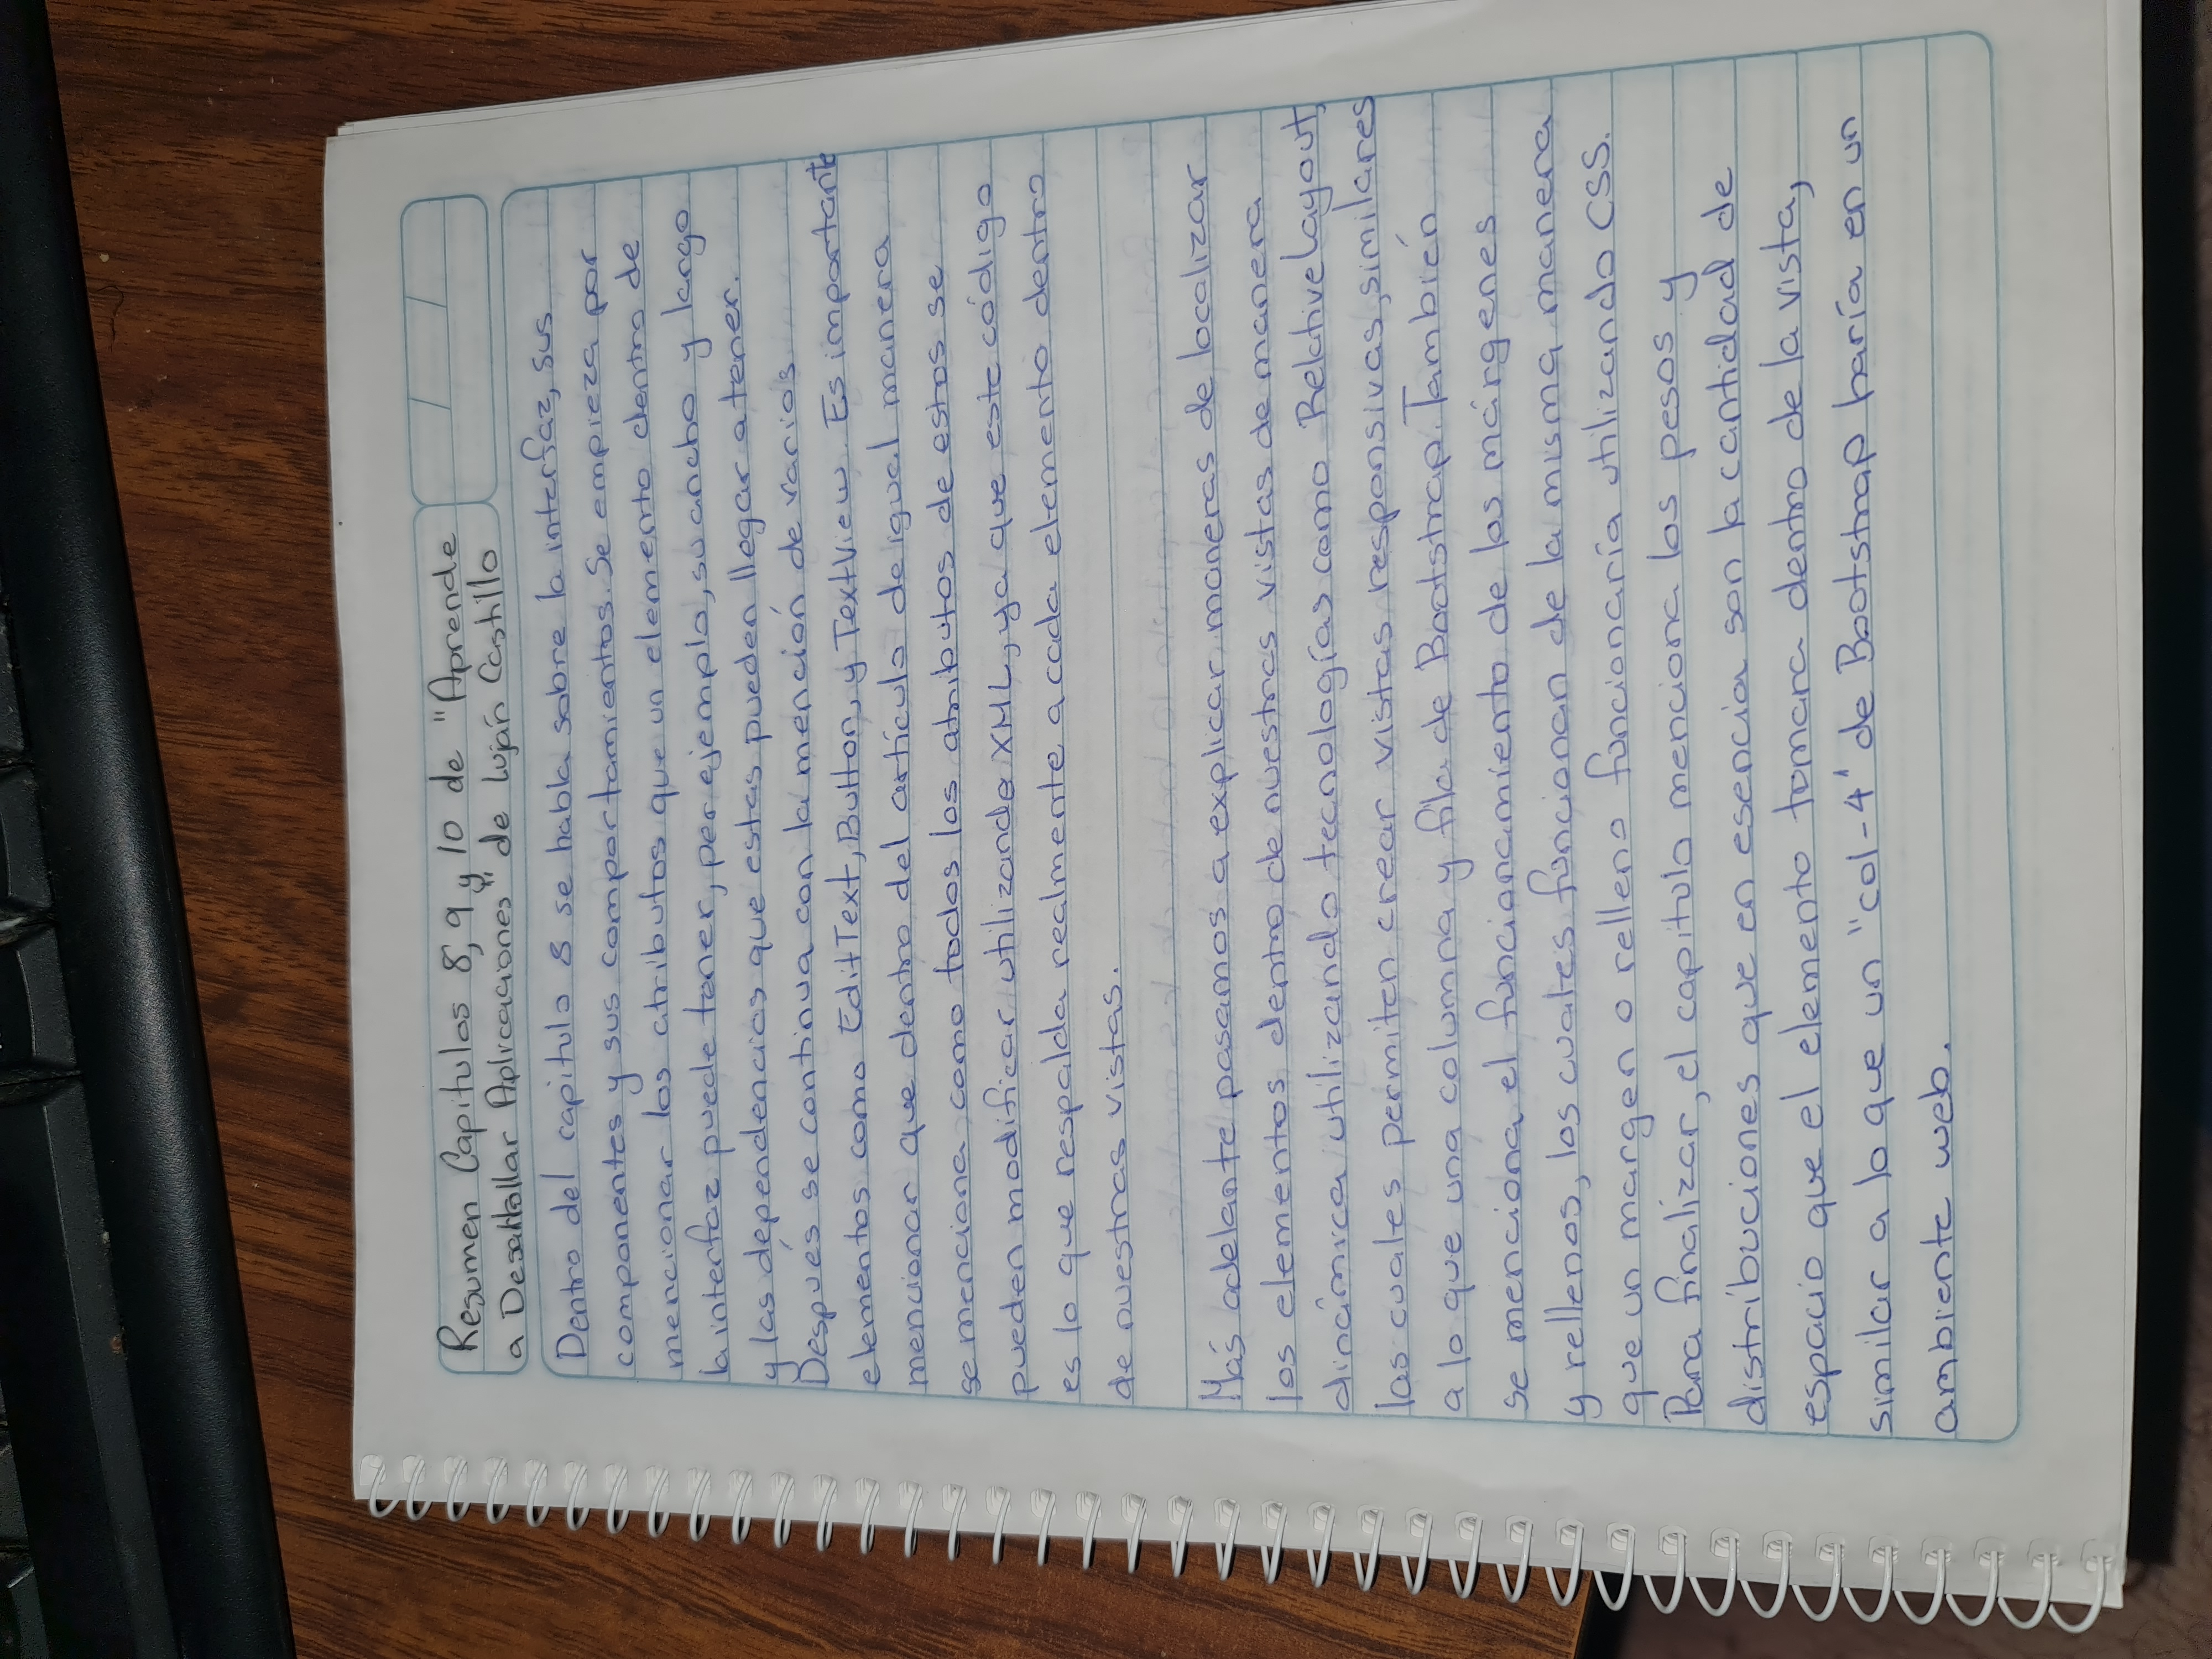 Resumen Capitulos 8, 9 y 10 de "Aprende
a Desarrollar Aplicaciones" de Luján Castillo
Dentro del capitulo 8 se habla sobre la interfaz, sus
componentes y sus comportamientos. Se empieza por
mencionar los atributos que un elemento dentro de
la interfaz puede tener, por ejemplo, su ancho y largo
y las dependencias que estas pueden llegar a tener.
Después se continua con la mención de varios
elementos como EditText, Button, y TextView. Es importante
mencionar que dentro del artículo de igual manera
se menciona como todos los atributos de estos se
pueden modificar utilizando XML, ya que este código
es lo que respalda realmente a cada elemento dentro
de nuestras vistas.
Más adelante pasamos a explicar maneras de localizar
los elementos dentro de nuestras vistas de manera
dinámica utilizando tecnologías como RelativeLayout,
las cuales permiten crear vistas responsivas, similares
a lo que una columna y fila de Bootstrap. También
se menciona el funcionamiento de los márgenes
y rellenos, los cuales funcionan de la misma manera
que un margen o relleno funcionaría utilizando CSS.
Para finalizar, el capitulo menciona los pesos y
distribuciones que en esencia son la cantidad de
espacio que el elemento tomara dentro de la vista,
similar a lo que un "col-4" de Bootstrap haría en un
ambiente web.